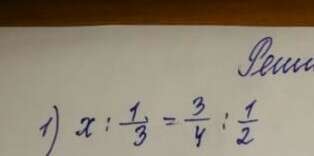 Реши
1) x : 1/3 = 3/4 : 1/2